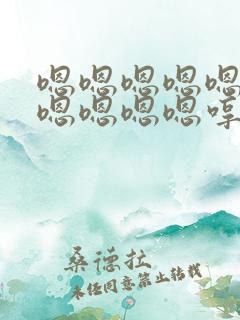 嗯嗯嗯嗯嗯
嗯嗯嗯嗯哼
桑德拉
未经同意禁止转载